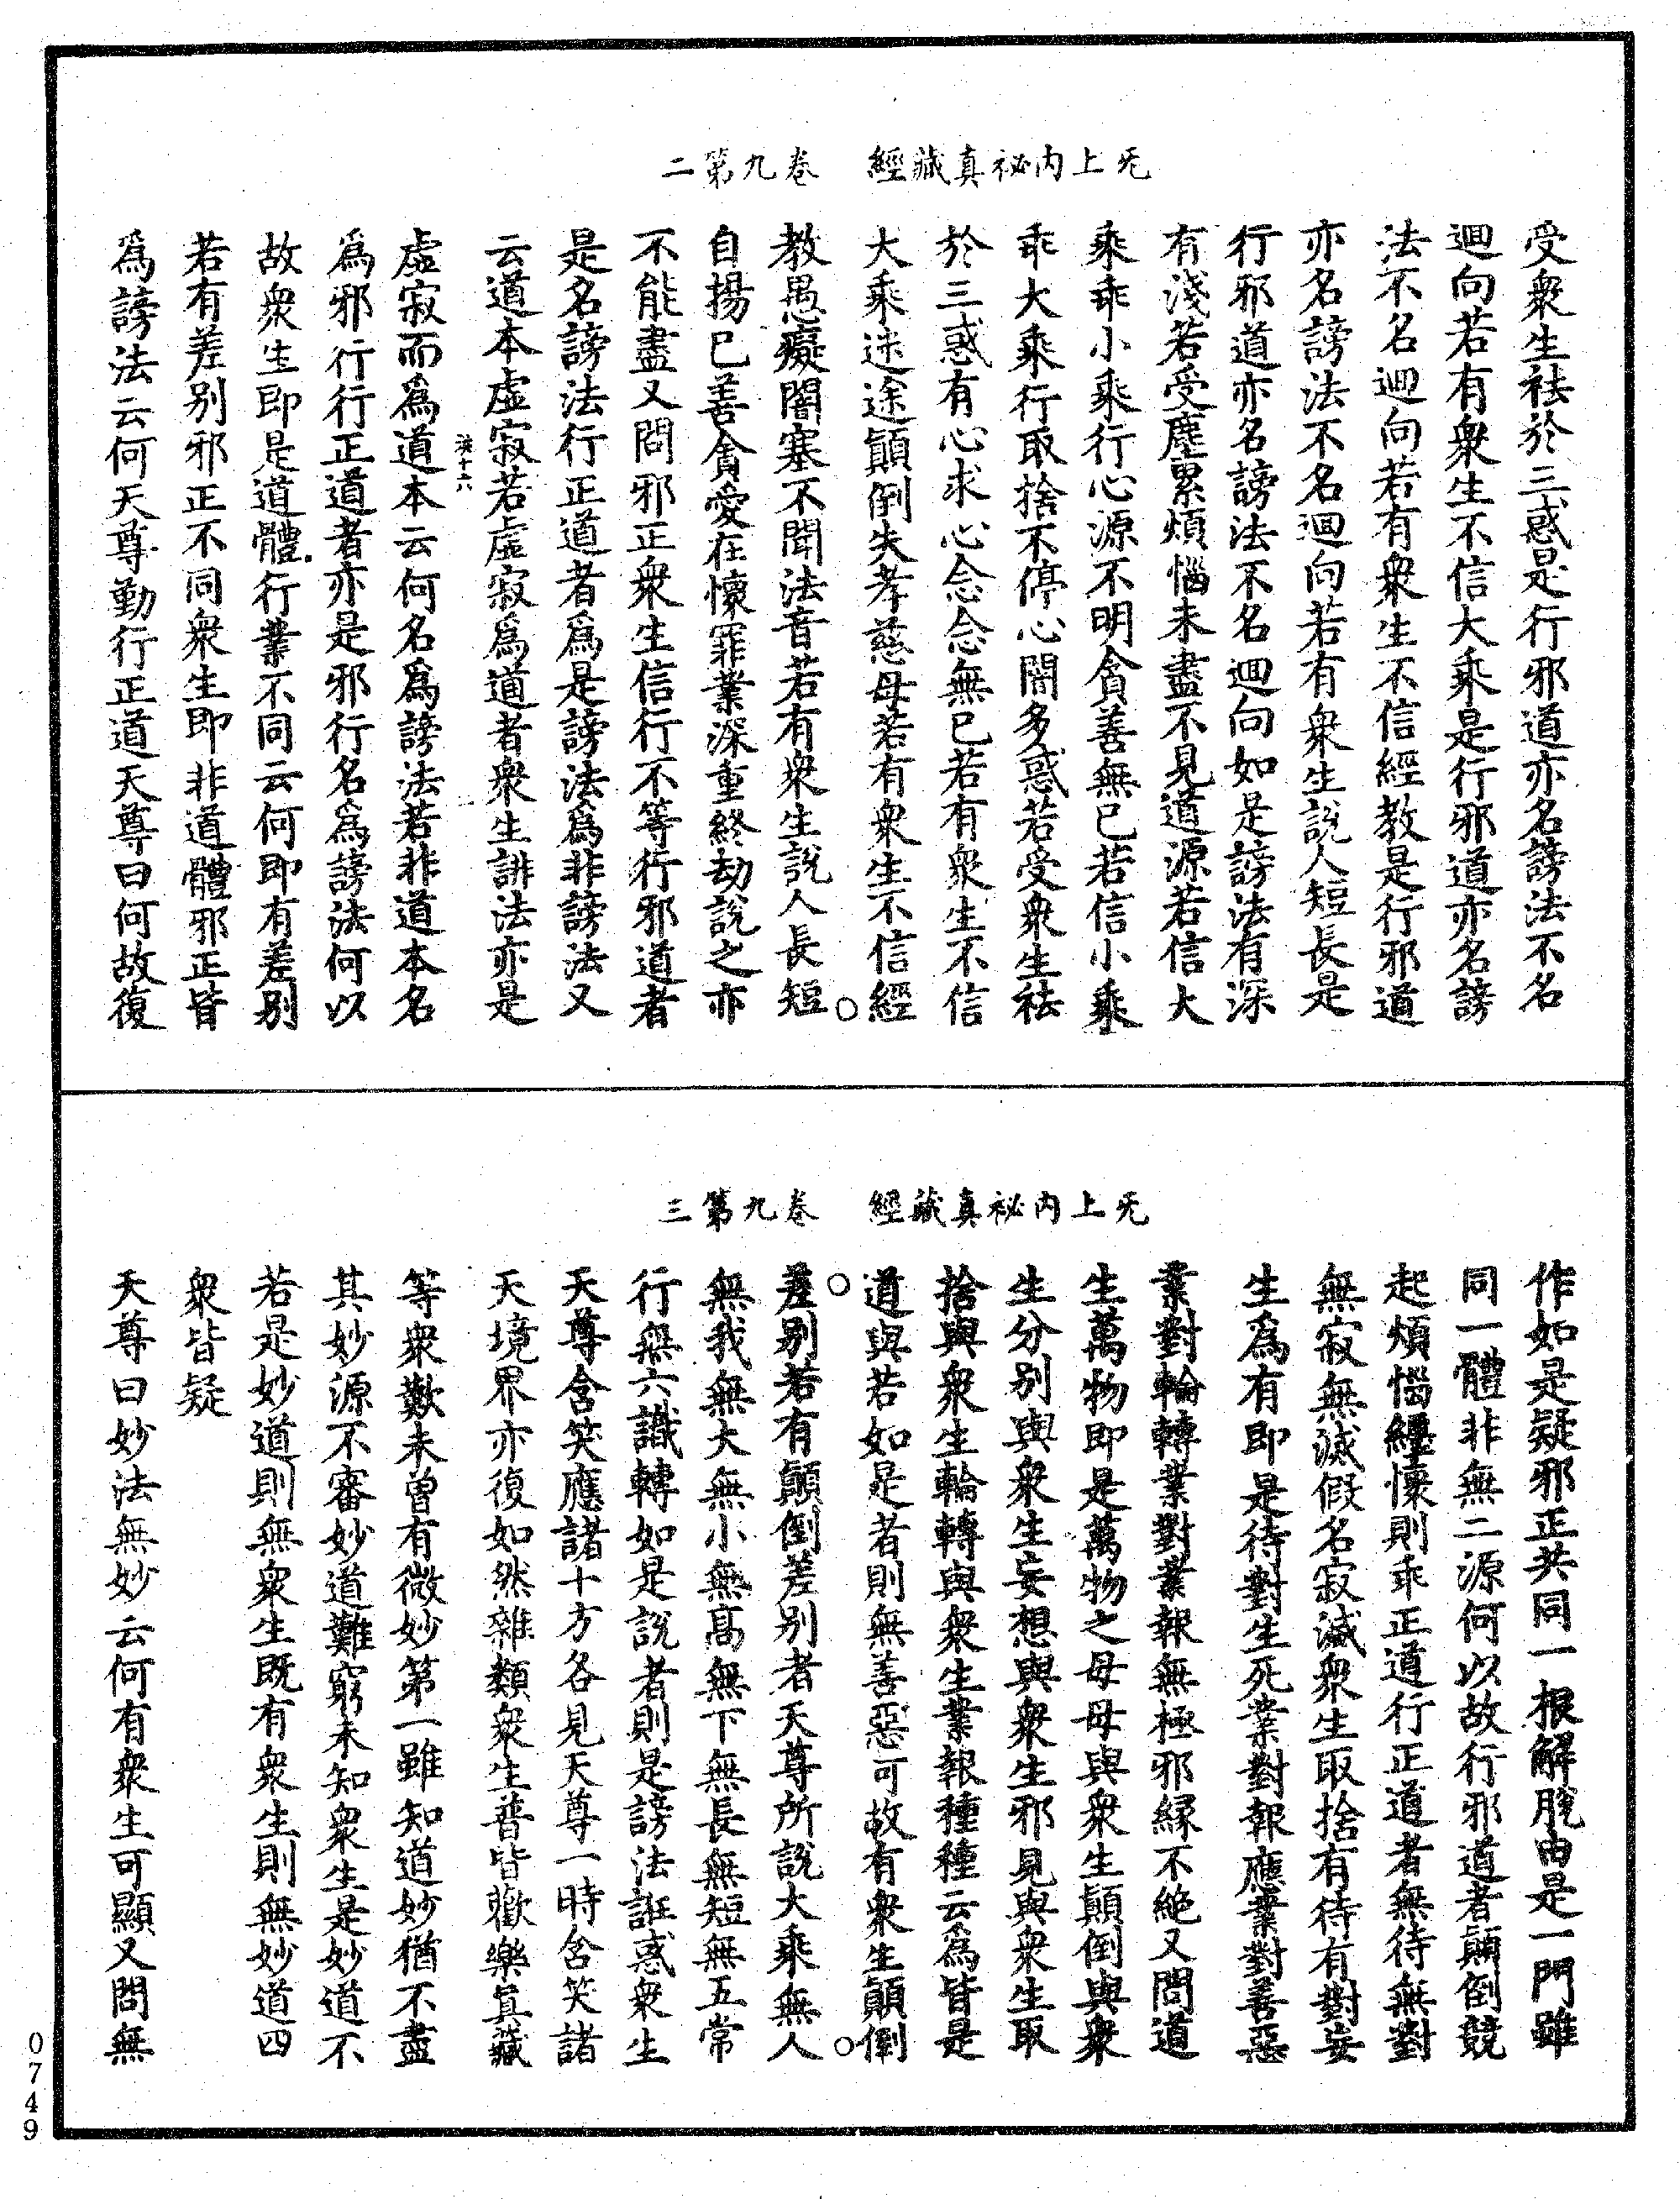 无上內祕真藏經　卷九第二
受衆生祛於三惑是行邪道亦名謗法不名
迴向若有衆生不信大乘是行邪道亦名謗
法不名迴向若有衆生不信經教是行邪道
亦名謗法不名迴向若有衆生說人短長是
行邪道亦名謗法不名迴向如是謗法有深
有淺若受塵累煩惱未盡不見道源若信大
乘乖小乘行心源不明貪善無已若信小乘
乖大乘行取捨不停心闇多惑若受衆生祛
於三惑有心求心念念無已若有衆生不信
大乘迷途顛倒失孝慈母若有衆生不信經
教愚癡闇塞不聞法音若有衆生說人長短
自揚已善貪愛在懷罪業深重終劫說之亦
不能盡又問邪正衆生信行不等行邪道者
是名謗法行正道者爲是謗法爲非謗法又
云道本虛寂若虛寂爲道者衆生誹法亦是
虛寂而爲道本云何名爲謗法若非道本名
爲邪行行正道者亦是邪行名爲謗法何以
故衆生即是道體行業不同云何即有差別
若有差別邪正不同衆生即非道體邪正皆
爲謗法云何天尊勤行正道天尊曰何故復
无上內祕真藏經　卷九第三
作如是疑邪正共同一根解脫由是一門雖
同一體非無二源何以故行邪道者顛倒競
起煩惱纏懷則乖正道行正道者無待無對
無寂無滅假名寂滅衆生取捨有待有對妄
生爲有即是待對生死業對報應業對善惡
業對輪轉業對業報無極邪緣不絕又問道
生萬物即是萬物之母母與衆生顛倒與衆
生分別與衆生妄想與衆生邪見與衆生取
捨與衆生輪轉與衆生業報種種云爲皆是
道與若如是者則無善惡可故有衆生顛倒
差別若有顛倒差別者天尊所說大乘無人
無我無大無小無高無下無長無短無五常
行無六識轉如是說者則是謗法誑惑衆生
天尊含笑應諸十方各見天尊一時含笑諸
天境界亦復如然雜類衆生普皆歡樂眞藏
等衆歎未曾有微妙第一雖知道妙猶不盡
其妙源不審妙道難窮未知衆生是妙道不
若是妙道則無衆生既有衆生則無妙道四
衆皆疑
天尊曰妙法無妙云何有衆生可顯又問無
0749